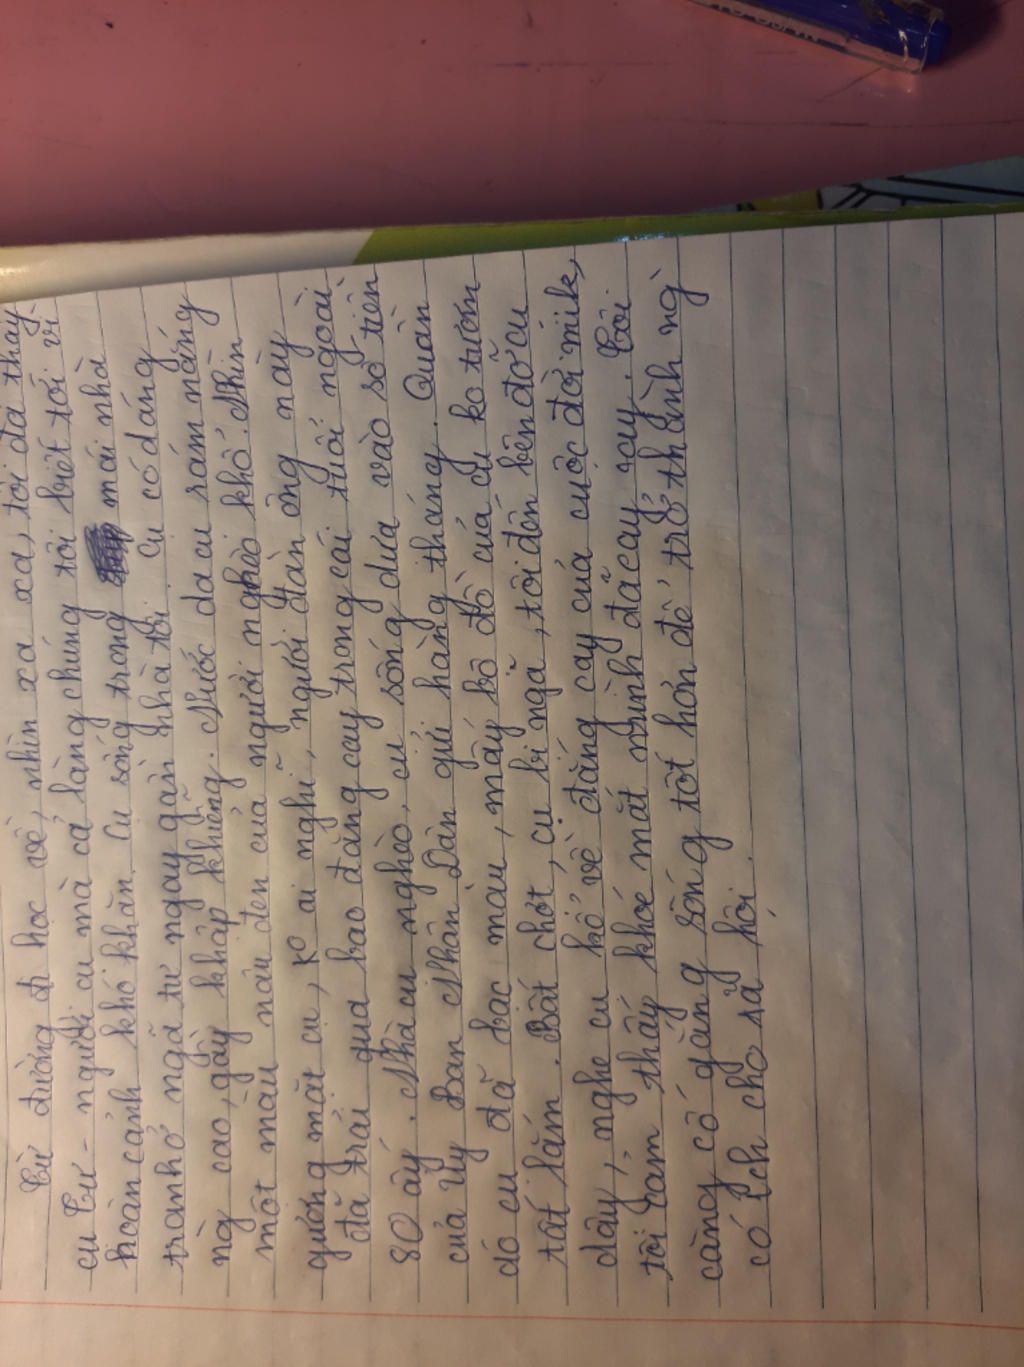 Từ đường đi học về, nhìn xa xa, tôi đã thấy
cụ Tư - người cụ mà cả làng chúng tôi biết tới vì
hoàn cảnh khó khăn. Cụ sống trong mái nhà
tranh ở ngã tư ngay gần nhà tôi. Cụ có dáng
người cao, gầy khập khiễng. Nước da cụ rám nắng
một màu nâu đen của người nghèo khổ. Nhìn
gương mặt cụ, ko ai nghĩ, người đàn ông này
đã trải qua bao đắng cay trong cái tuổi ngoài
80 ấy. Nhà cụ nghèo, cụ sống dựa vào số tiền
của Ủy Ban Nhân Dân gửi hàng tháng. Quần
áo cụ đã bạc màu, mấy bộ đồ của cụ ko tươm
tất lắm. Bất chợt, cụ bị ngã, tôi đến bên đỡ cụ
dậy, nghe cụ kể về đắng cay của cuộc đời mik,
tôi cảm thấy khoé mắt mình đã cay cay. Tôi
càng cố gắng sống tốt hơn để trở thành ng
có ích cho xã hội.